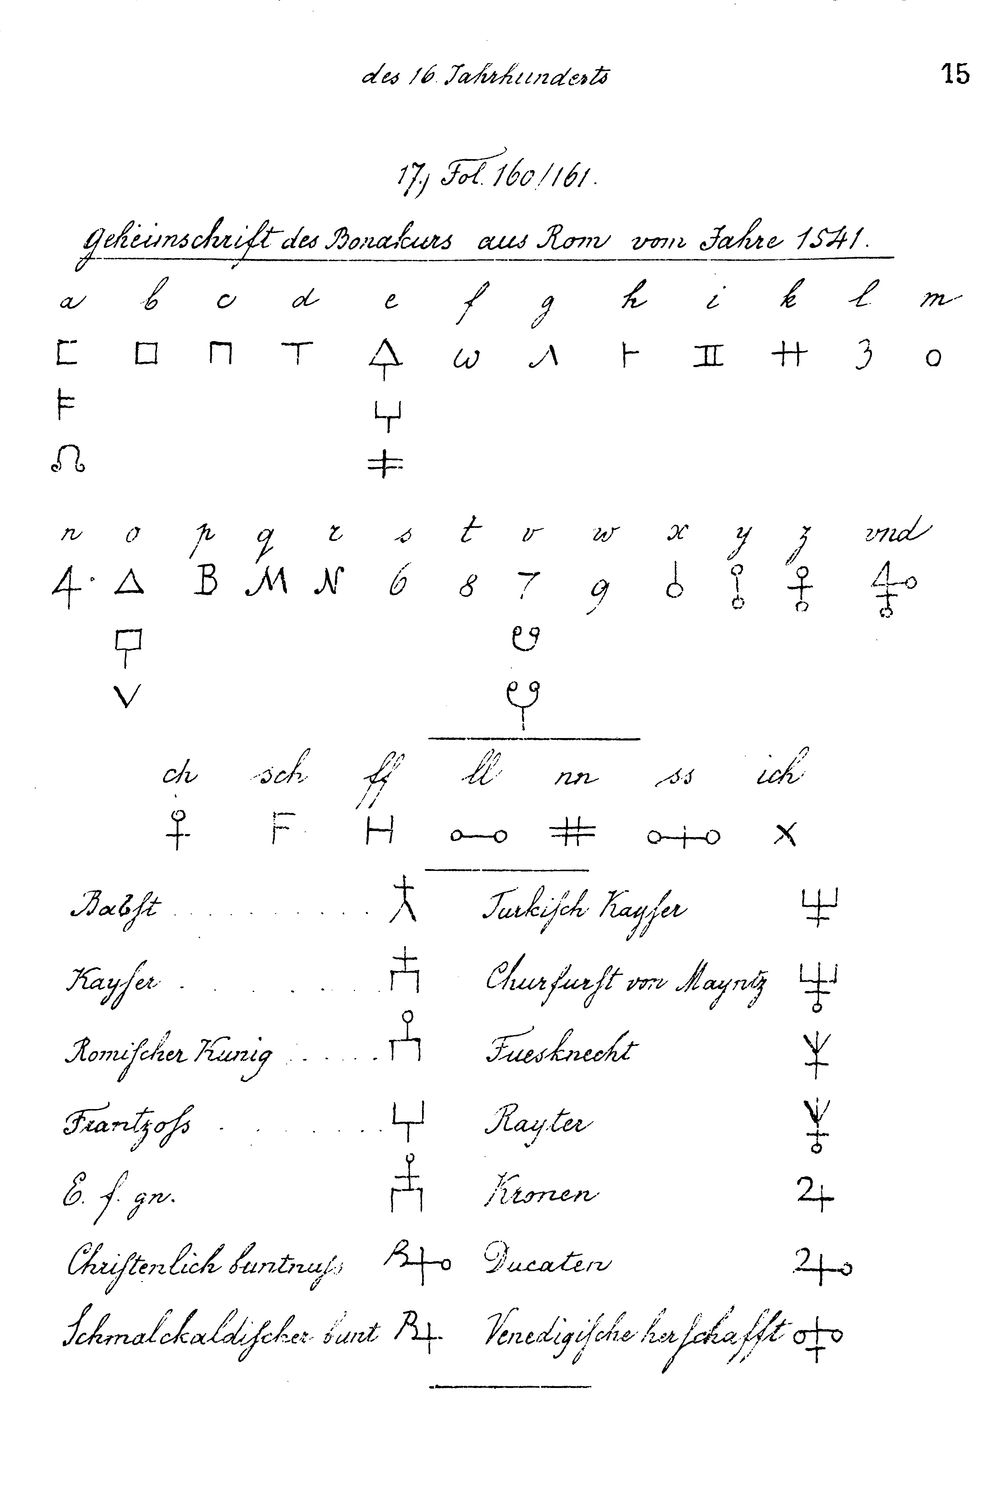 des 16. Jahrhunderts 15
17., Fol. 160/161.
Geheimschrift des Bonakurs aus Rom vom Jahre 1541.
a b c d e f g h i k l m
⊏ □ ⊓ T ω Λ ⊦ II 3 o
n o p q r s t v w x y z vnd
4. △ B M N 6 8 7 9
V
ch sch ff ll nn ss ich
F H X
Babſt . . . . . . . . . . Turkiſch Kayſer
Kayſer . . . . . . Churfurſt von Mayntz
Romiſcher Kunig . . . . . . Fuesknecht
Frantzoſs . . . . . . Rayter
E. f. gn. Kronen
Chriſtenlich buntnuſs Ducaten
Schmalckaldiſcher bunt Venedigiſche herſchafft